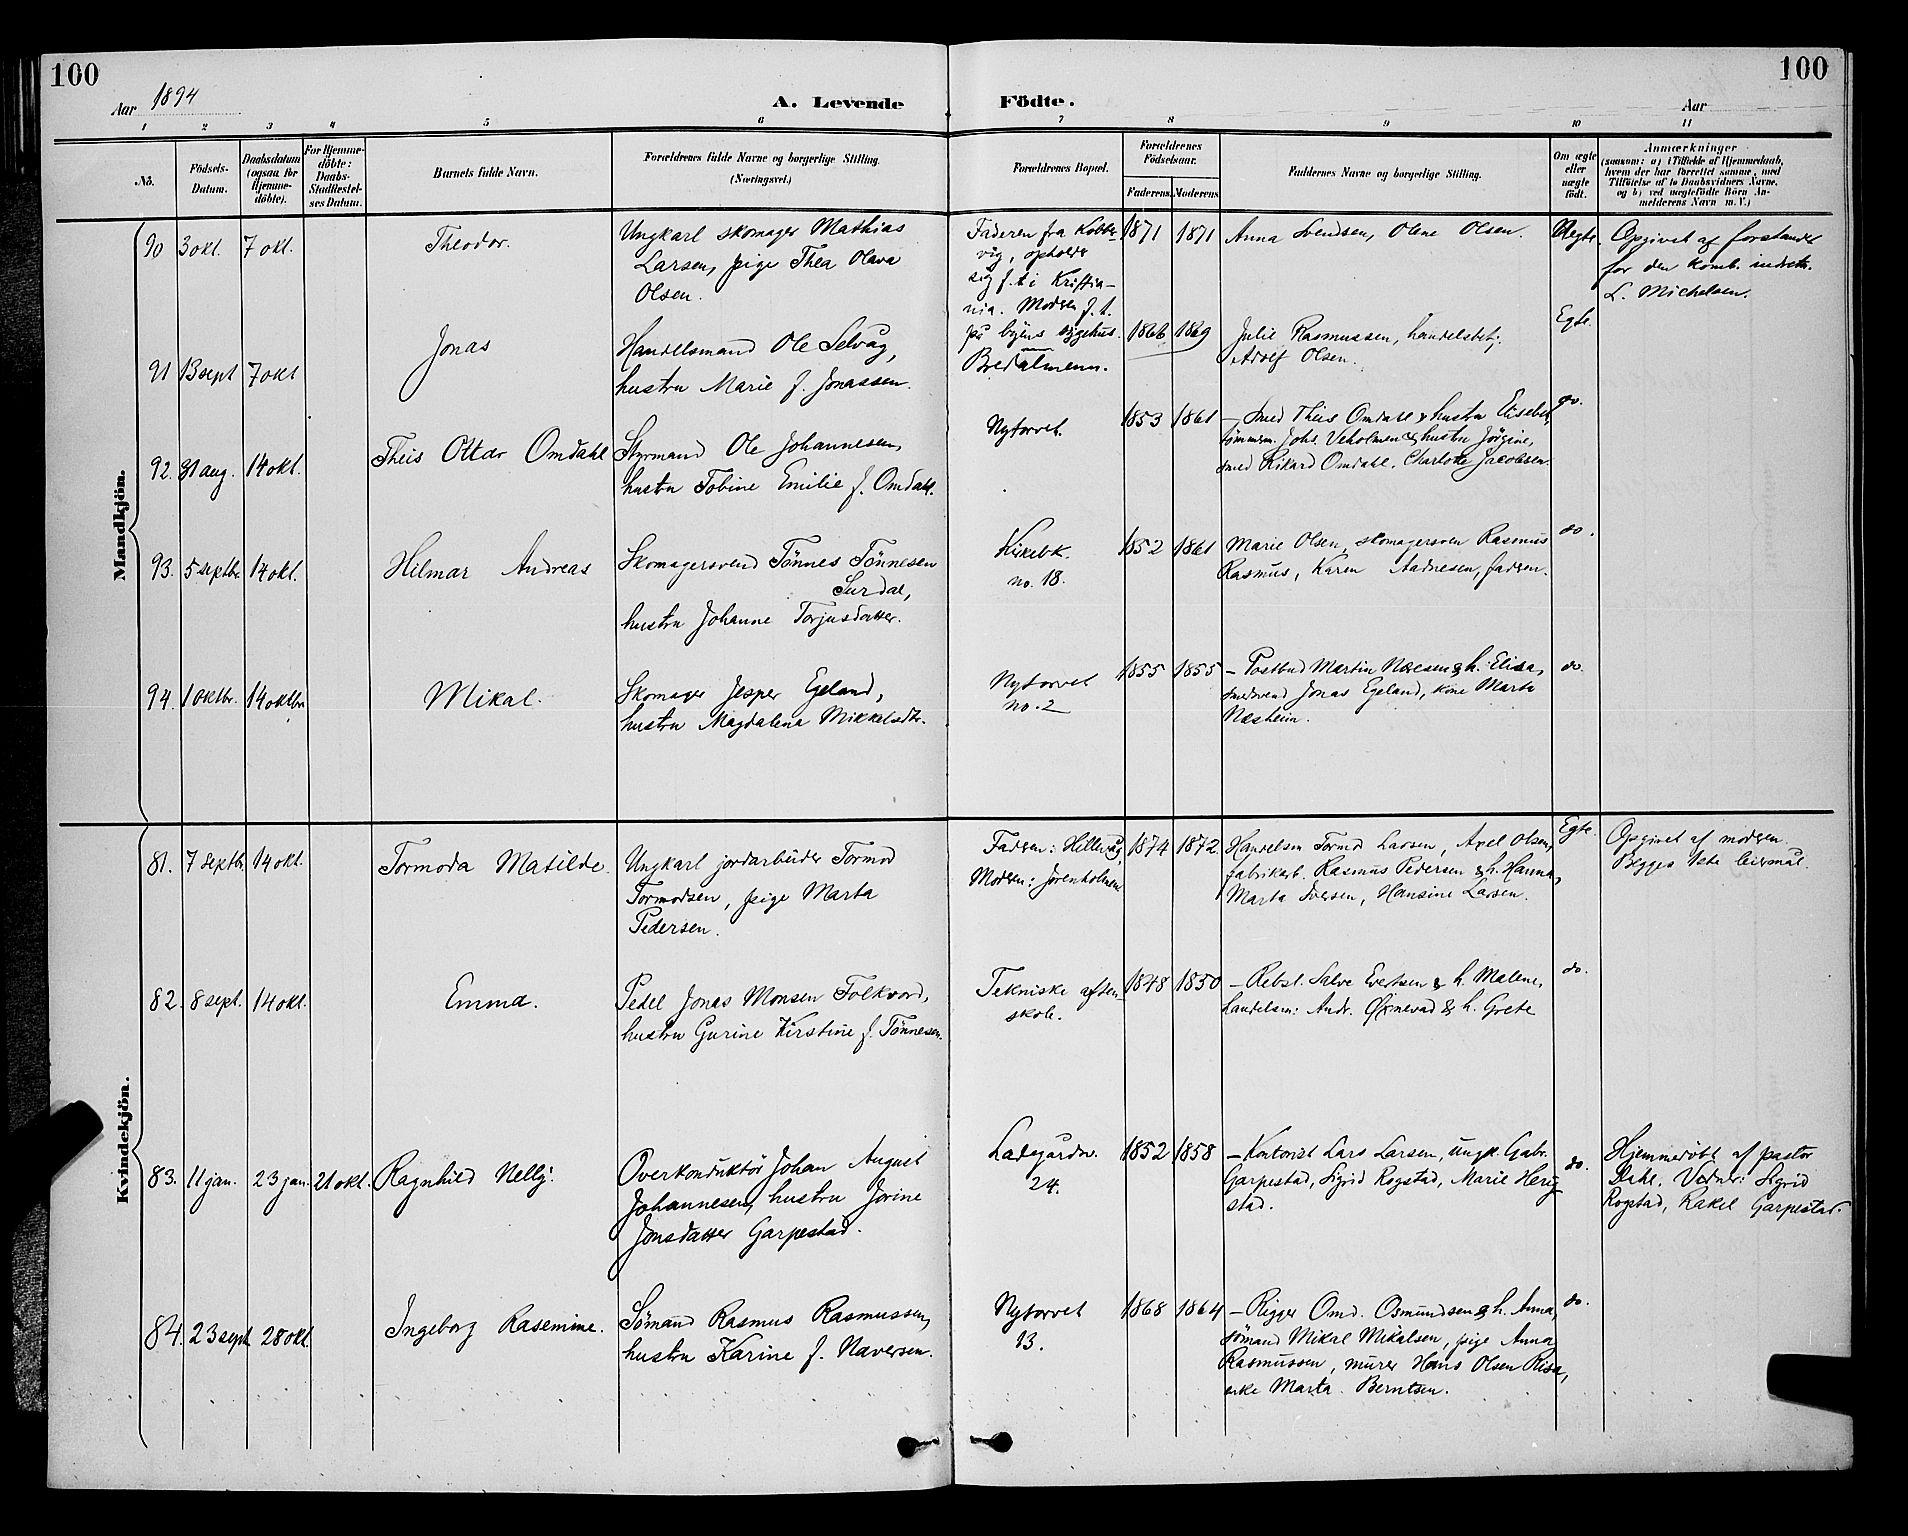 100
100
Aar 1894
A. Levende Födte.
Aar
1 2 3 4 5 6 7 8 9 10 11
No.
Födsels-Datum.
Daabsdatum (ogsaa for Hjemme-döbte).
For Hjemme-döbte: Daabs-Stadfæstel-ses Datum.
Barnets fulde Navn.
Forældrenes fulde Navne og borgerlige Stilling.
(Næringsvei.)
Forældrenes Bopæl.
Forældrenes Födselsaar.
Faderens. Moderens.
Faddernes Navne og borgerlige Stilling.
Om ægte eller uægte födt.
Anmærkninger
(saasom: a) i Tilfælde af Hjemmedaab, hvem der har forrettet samme, med Tilföielse af to Daabsvidners Navne, og b) ved uægtefödte Börn An-melderens Navn m. V.)
Mandkjön.
90 3 okt. 7 okt. Theodor.
Ungkarl skomager Mathias
Larsen, pige Thea Olava
Olsen.
Faderen fra Kobber-
vig, opholder
sig f.t. i Kristia-
nia. Modren f.t.
på byens sygehus.
1871 1871
Anna Svendsen, Olene Olsen.
Uegte.
Opgivet af forstander
for den komb. indretn.
L. Michelsen.
91 13 sept 7 okt Jonas
Handelsmand Ole Selvåg,
hustru Marie f. Jonassen.
Bredalmenn.
1866 1869
Julie Rasmussen, handelsbetj.
Adolf Olsen.
Egte.
92. 31 aug. 14 okt. Theis Ottar Omdahl
Styrmand Ole Johannesen,
hustru Tobine Emilie f. Omdahl.
Nytorvet.
1853 1861
– Smed Theis Omdahl & hustru Elisebet,
tömmerm. Johs. Veholmen & hustru Jörgine,
smed Rikard Omdahl. Charlotte Jacobsen.
do.
93. 5 septbr. 14 okt. Hilmar Andreas
Skomagersvend Tönnes Tönnesen
Surdal,
hustru Johanne Torjusdatter.
Kirkebk.
no. 18.
1852 1861
Marie Olsen, skomagersven Rasmus
Rasmus, Karen Aadnesen, fadren.
do.
94. 1 oktbr. 14 oktbr Mikal.
Skomager Jesper Egeland,
hustru Magdalena Mikkelsdtr.
Nytorvet
no. 2
1855 1855
– Postbud Martin Næesen & h. Elisa,
smedsvend Jonas Egeland, kone Marta
Næsheim.
do.
Kvindekjön.
81. 7 septbr. 14 okt. Tormoda Matilde.
Ungkarl jordarbeider Tormod
Tormodsen, pige Marta
Pedersen.
Fadren: Hillevåg,
Modren: Jorenholmen
1874 1872
Handelsm Tormod Larsen, Axel Olsen,
fabrikarb. Rasmus Pedersen & h. Hanna,
Marta Iversen, Hansine Larsen.
Egte.
Opgivet af modren.
Begges 1ste leiermål.
82. 8 sept. 14 okt. Emma.
Pedel Jonas Monsen Folkvord,
hustru Gurine Kirstine f. Tönnesen.
Tekniske aften
skole.
1848 1850
– Rebsl. Salve Evertsen & h. Malene,
handelsm: Andr. Öxnevad & h. Grete
do.
83. 11 jan. 23 jan. 21 okt. Ragnhild Nelly.
Overkonduktör Johan August
Johannesen, hustru Jorine
Jonsdatter Garpestad.
Ladegårdsv.
24.
1852 1858
– Kontorist Lars Larsen, ungk. Gabr.
Garpestad, Sigrid Rogstad, Marie Herig
stad.
do.
Hjemmedöbt af pastor
Dahl. Vidner: Sigrid
Rogstad, Rakel Garpestad.
84. 23 sept 28 okt. Ingeborg Rasemine.
Sömand Rasmus Rasmussen,
hustru Karine f. Naversen.
Nytorvet
13.
1868 1864
– Rigger Omd. Osmundsen & h. Anna,
sömand Mikal Mikalsen, pige Anna
Rasmussen, murer Hans Olsen Risa,
enke Marta Berntsen.
do.